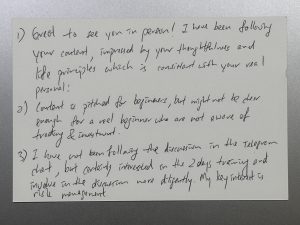 1) Great to see you in person! I have been following
your content, impressed by your thoughtfulness and
life principles which is consistent with your real
personal.
2) Content is pitched for beginners, but might not be clear
enough for a real beginner who are not aware of
trading & investment.
3) I have not been following the discussion in the Telegram
chat, but certainly interested in the 2 days training and
involve in the discussion more diligently. My key interest is
risk management.